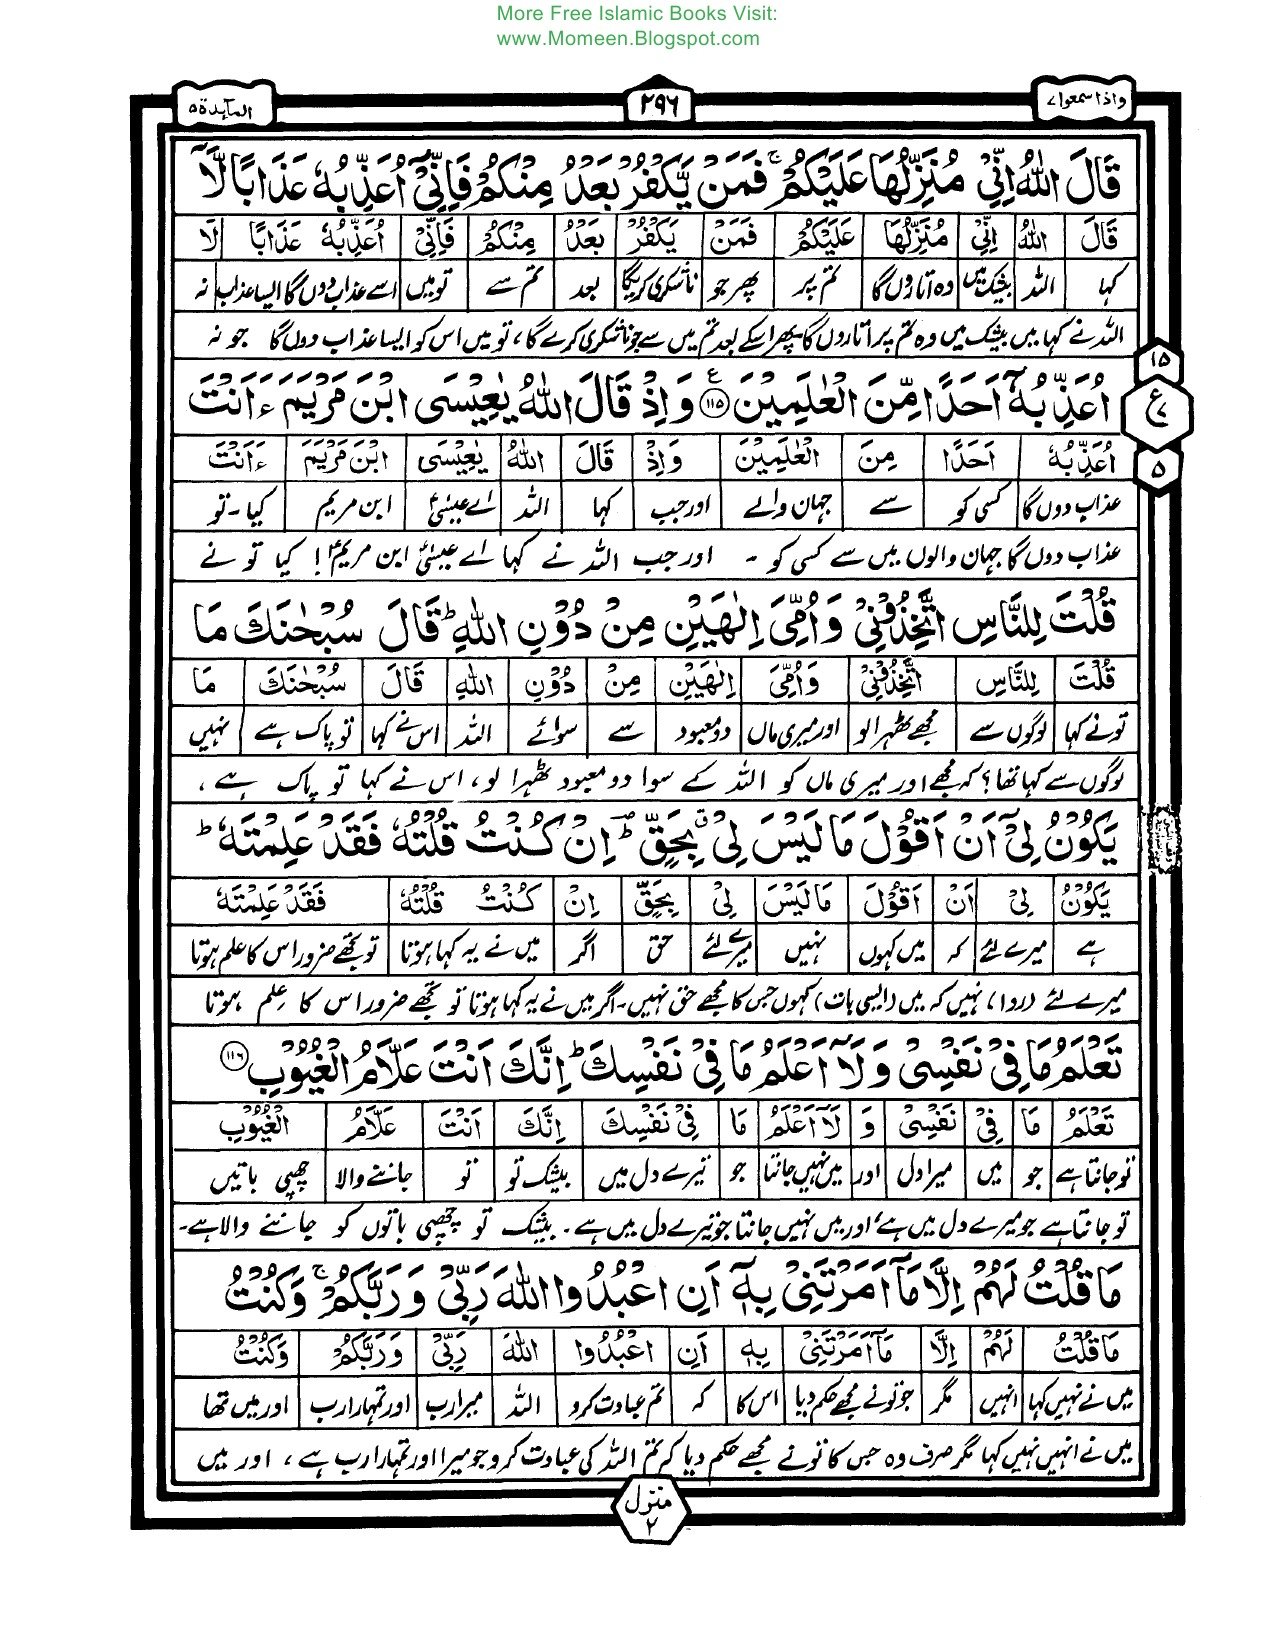 More Free Islamic Books Visit:
www.Momeen.Blogspot.com
واذا سمعوا ٧
٢٩٦
المآىِٕدة ٥
قَالَ اللّٰهُ اِنِّیْ مُنَزِّلُهَا عَلَیْكُمْ ۚ فَمَنْ یَّكْفُرْ بَعْدُ مِنْكُمْ فَاِنِّیْۤ اُعَذِّبُهٗ عَذَابًا لَّاۤ
قَالَ اللّٰهُ اِنِّیْ مُنَزِّلُهَا عَلَیْكُمْ فَمَنْ یَكْفُرْ بَعْدُ مِنْكُمْ فَاِنِّیْ اُعَذِّبُهٗ عَذَابًا لَا
کہا اللہ بیشک میں وہ اتاروں گا تم پر پھر جو ناشکری کریگا بعد تم سے تو میں اسے عذاب دوں گا ایسا عذاب نہ
اللہ نے کہا میں بیشک میں وہ تم پر اتاروں گا پھر اسکے بعد تم میں سے جو ناشکری کرے گا، تو میں اس کو ایسا عذاب دوں گا جو نہ
١٥
اُعَذِّبُهٗۤ اَحَدًا مِّنَ الْعٰلَمِیْنَ ۧ ١١٥ وَاِذْ قَالَ اللّٰهُ یٰعِیْسَی ابْنَ مَرْیَمَ ءَاَنْتَ
ع ٧
اُعَذِّبُهٗ اَحَدًا مِنَ الْعٰلَمِیْنَ وَاِذْ قَالَ اللّٰهُ یٰعِیْسَی ابْنَ مَرْیَمَ ءَاَنْتَ
٥
عذاب دوں گا کسی کو سے جہان والے اور جب کہا اللہ اے عیسٰیؑ ابن مریم کیا۔تو
عذاب دوں گا جہان والوں میں سے کسی کو ۔ اور جب اللہ نے کہا اے عیسٰیؑ ابن مریمؑ! کیا تو نے
قُلْتَ لِلنَّاسِ اتَّخِذُوْنِیْ وَاُمِّیَ اِلٰهَیْنِ مِنْ دُوْنِ اللّٰهِ ؕ قَالَ سُبْحٰنَكَ مَا
قُلْتَ لِلنَّاسِ اتَّخِذُوْنِیْ وَاُمِّیَ اِلٰهَیْنِ مِنْ دُوْنِ اللّٰهِ قَالَ سُبْحٰنَكَ مَا
تو نے کہا لوگوں سے مجھے ٹھہرا لو اور میری ماں دو معبود سے سوائے اللہ اس نے کہا تو پاک ہے نہیں
لوگوں سے کہا تھا؟ کہ مجھے اور میری ماں کو اللہ کے سوا دو معبود ٹھہرا لو، اس نے کہا تو پاک ہے،
یَكُوْنُ لِیْۤ اَنْ اَقُوْلَ مَا لَیْسَ لِیْ ۗ بِحَقٍّ ؕ اِنْ كُنْتُ قُلْتُهٗ فَقَدْ عَلِمْتَهٗ ؕ
یَكُوْنُ لِیْ اَنْ اَقُوْلَ مَا لَیْسَ لِیْ بِحَقٍّ اِنْ كُنْتُ قُلْتُهٗ فَقَدْ عَلِمْتَهٗ
ہے میرے لئے کہ میں کہوں نہیں میرے لئے حق اگر میں نے یہ کہا ہوتا تو تجھے ضرور اس کا علم ہوتا
میرے لئے (روا) نہیں کہ میں (ایسی بات) کہوں جس کا مجھے حق نہیں۔ اگر میں نے یہ کہا ہوتا تو تجھے ضرور اس کا علم ہوتا
تَعْلَمُ مَا فِیْ نَفْسِیْ وَلَاۤ اَعْلَمُ مَا فِیْ نَفْسِكَ ؕ اِنَّكَ اَنْتَ عَلَّامُ الْغُیُوْبِ ١١٦
تَعْلَمُ مَا فِیْ نَفْسِیْ وَ لَاۤ اَعْلَمُ مَا فِیْ نَفْسِكَ اِنَّكَ اَنْتَ عَلَّامُ الْغُیُوْبِ
تو جانتا ہے جو میں میرا دل اور میں نہیں جانتا جو تیرے دل میں بیشک تو تو جاننے والا چھپی باتیں
تو جانتا ہے جو میرے دل میں ہے، اور میں نہیں جانتا جو تیرے دل میں ہے۔ بیشک تو چھپی باتوں کو جاننے والا ہے۔
مَا قُلْتُ لَهُمْ اِلَّا مَاۤ اَمَرْتَنِیْ بِهٖۤ اَنِ اعْبُدُوا اللّٰهَ رَبِّیْ وَرَبَّكُمْ ۚ وَكُنْتُ
مَا قُلْتُ لَهُمْ اِلَّا مَاۤ اَمَرْتَنِیْ بِهٖ اَنِ اعْبُدُوا اللّٰهَ رَبِّیْ وَرَبَّكُمْ وَكُنْتُ
میں نے نہیں کہا انہیں مگر جو تونے مجھے حکم دیا اس کا کہ تم عبادت کرو اللہ میرا رب اور تمہارا رب اور میں تھا
میں نے انہیں نہیں کہا مگر صرف وہ جس کا تونے مجھے حکم دیا کہ تم اللہ کی عبادت کرو جو میرا اور تمہارا رب ہے، اور میں
منزل ٢